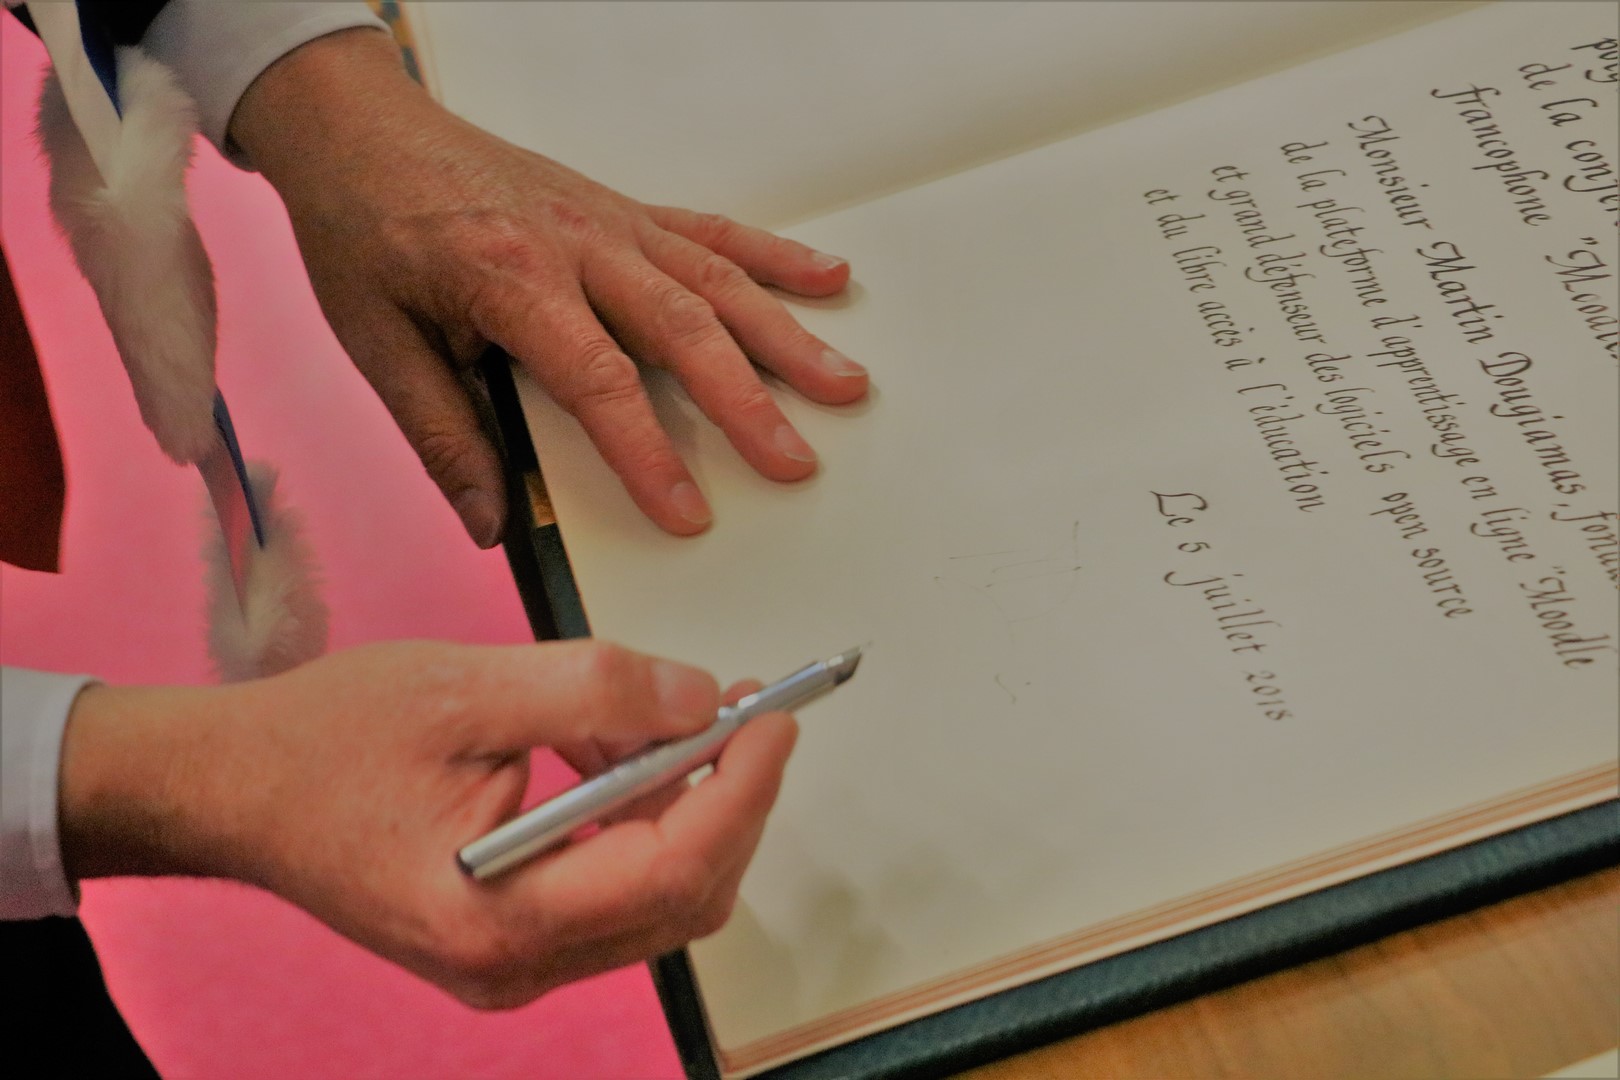 de la
francophone "Moodle
Monsieur Martin Dougiamas,
de la plateforme d'apprentissage en ligne "Moodle
et grand défenseur des logiciels open source
et du libre accès à l'éducation
Le 5 juillet 2018